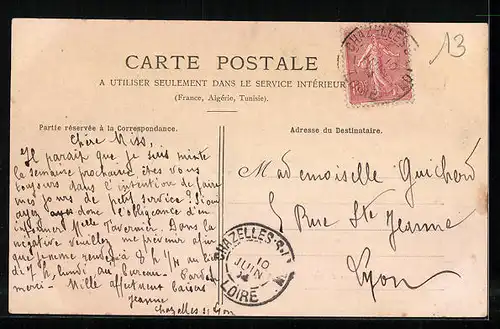 CARTE POSTALE
A UTILISER SEULEMENT DANS LE SERVICE INTÉRIEUR
(France, Algérie, Tunisie).
13
CHAZELLES-S
Partie réservée à la Correspondance.
Adresse du Destinataire.
Chère Miss,
Il paraît que je suis
la semaine prochaine êtes vous
toujours dans l'intention de faire
mes jours de petit service? Si oui
ayez donc l'obligeance d'en
informer Melle Tavernier. Dans la
négative veuillez me prévenir afin
que je me rende à 8 h 1/4 au lieu
de 7 h, lundi au bureau.
merci - Mille affectueux baisers
Jeanne
Chazelles s/ Lyon
Mademoiselle Guichard
5 Rue Ste Jeanne
Lyon
CHAZELLES-S-L
10
JUIN
LOIRE